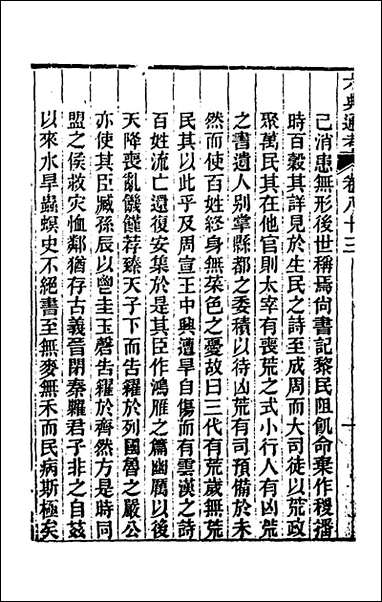 六典通考 卷八十三
己消患無形後世稱焉尚書記黎民阻飢命棄作稷播
時百穀其詳見於生民之詩至成周而大司徒以荒政
聚萬民其在他官則太宰有喪荒之式小行人有凶荒
之書遺人別掌縣都之委積以待凶荒有司預備於未
然而使百姓終身無菜色之憂故曰三代有荒歲無荒
民其以此乎及周宣王中興遭旱自傷而有雲漢之詩
百姓流亡還復安集於是其臣作鴻雁之篇幽厲以後
天降喪亂饑饉荐臻天子下而告糴於列國魯之嚴公
亦使其臣臧孫辰以鬯圭玉磬告糴於齊然方是時同
盟之侯救灾恤鄰猶存古義晉閉秦糴君子非之自茲
以來水旱蟲螟史不絕書至無麥無禾而民病斯極矣